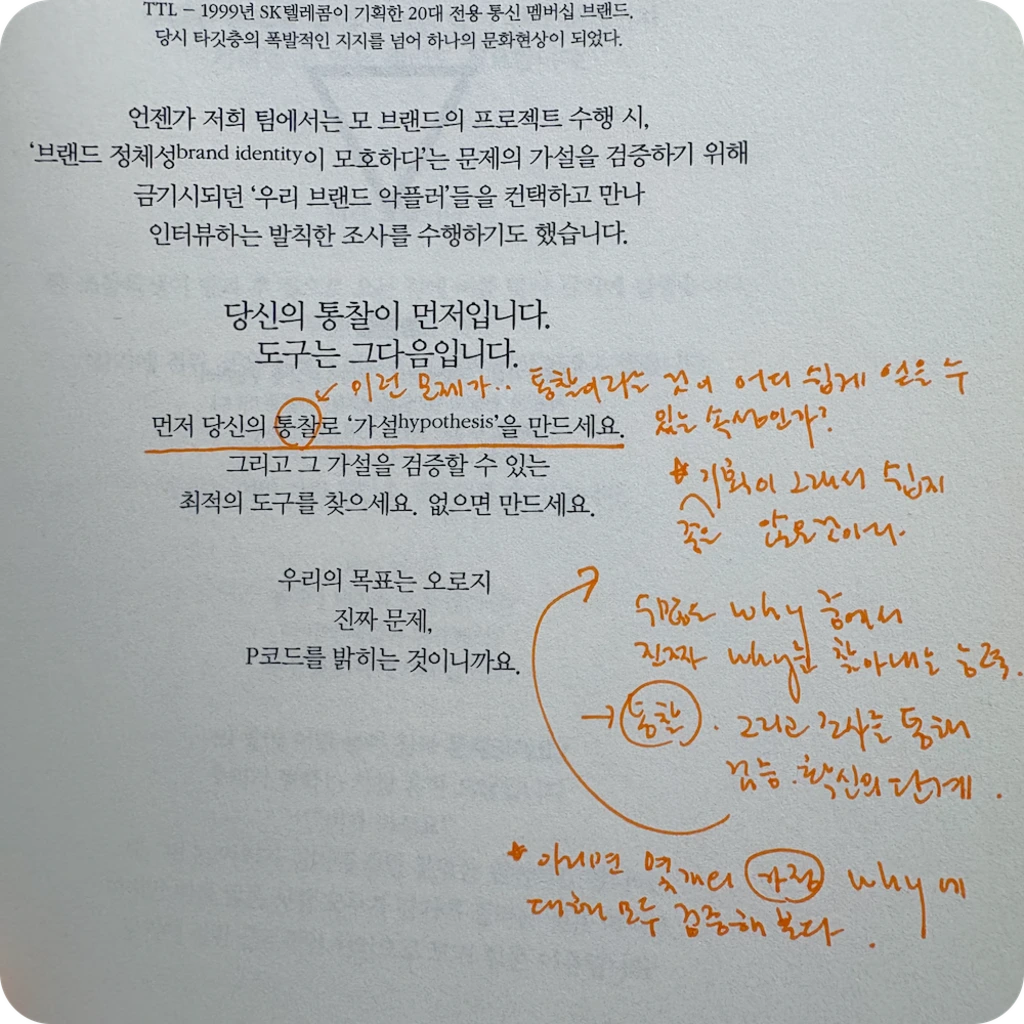 TTL – 1999년 SK텔레콤이 기획한 20대 전용 통신 멤버십 브랜드.
당시 타깃층의 폭발적인 지지를 넘어 하나의 문화현상이 되었다.
언젠가 저희 팀에서는 모 브랜드의 프로젝트 수행 시,
‘브랜드 정체성brand identity이 모호하다’는 문제의 가설을 검증하기 위해
금기시되던 ‘우리 브랜드 악플러’들을 컨택하고 만나
인터뷰하는 발칙한 조사를 수행하기도 했습니다.
당신의 통찰이 먼저입니다.
도구는 그다음입니다.
먼저 당신의 통찰로 ‘가설hypothesis’을 만드세요.
그리고 그 가설을 검증할 수 있는
최적의 도구를 찾으세요. 없으면 만드세요.
우리의 목표는 오로지
진짜 문제,
P코드를 밝히는 것이니까요.
이런 문제가.. 통찰이라는 것이 어디 쉽게 얻을 수
있는 속성인가?
기획이 그래서 쉽지
좋은 않은 것이다.
수많은 why 중에서
진짜 why를 찾아내는 능력.
→ 통찰. 그리고 조사를 통해
검증. 확신의 단계.
아니면 몇개의 가정 why에
대해 모두 검증해 본다.